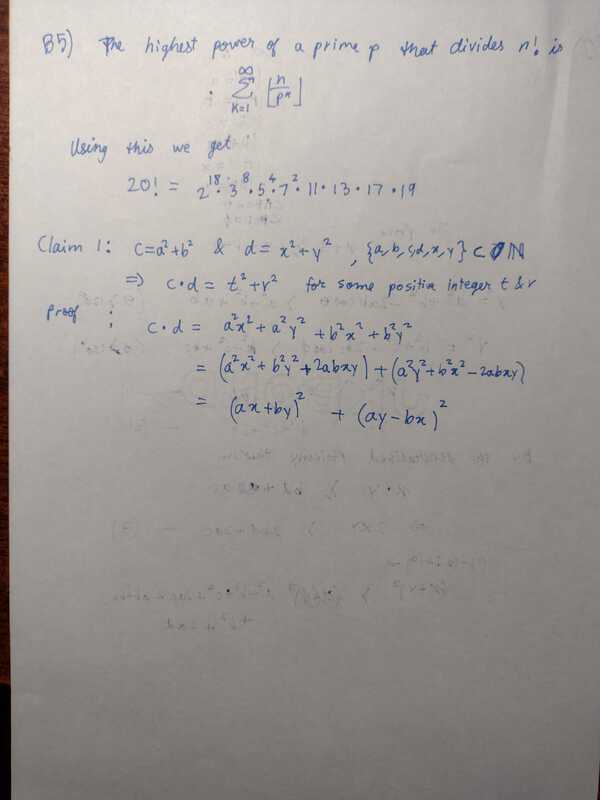 B5) The highest power of a prime p that divides n! is
∑_{k=1}^{∞} ⌊n/p^k⌋
Using this we get
20! = 2^18 · 3^8 · 5^4 · 7^2 · 11 · 13 · 17 · 19
Claim 1: c=a²+b² & d= x²+y² , {a,b,c,d,x,y} ⊂ ℕ
⇒ c·d = t²+r² for some positive integer t & r
proof : c·d = a²x² + a²y² + b²x² + b²y²
= (a²x² + b²y² + 2abxy) + (a²y² + b²x² − 2abxy)
= (ax+by)² + (ay−bx)²